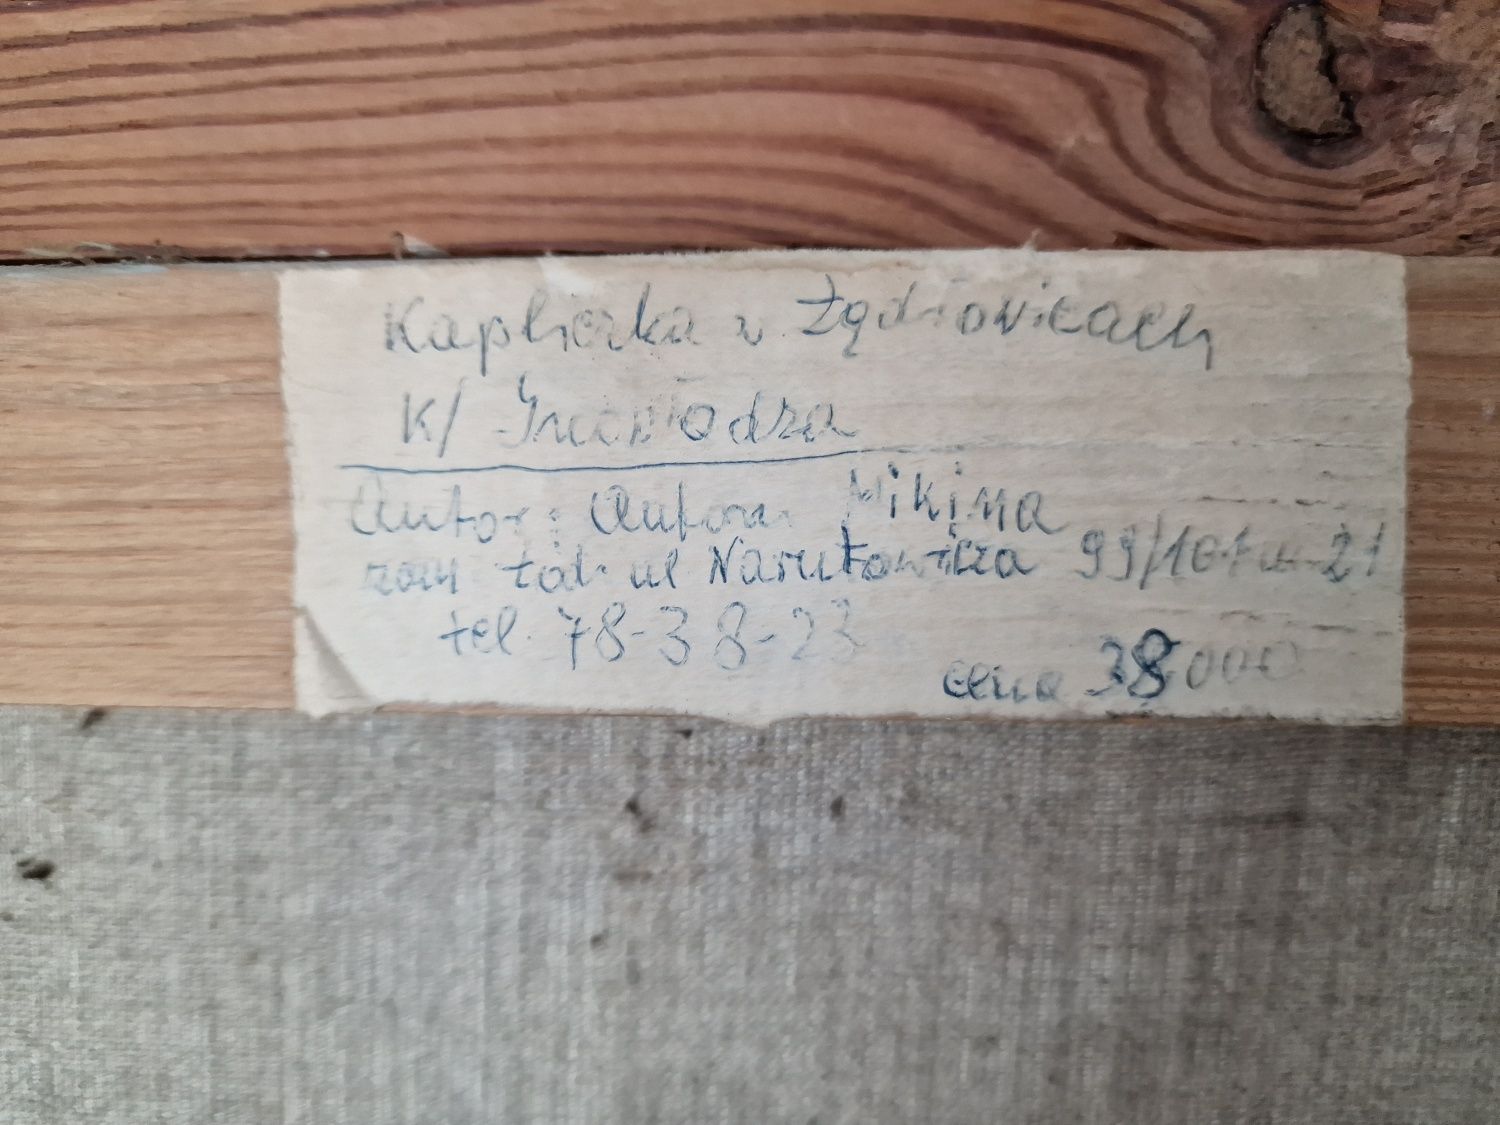 Kapliczka w Żądłowicach
K/ Inowłodza
Autor: Antoni Mikina
zam Łódź ul Narutowicza 99/101 m 21
tel. 78-38-23
cena 38000